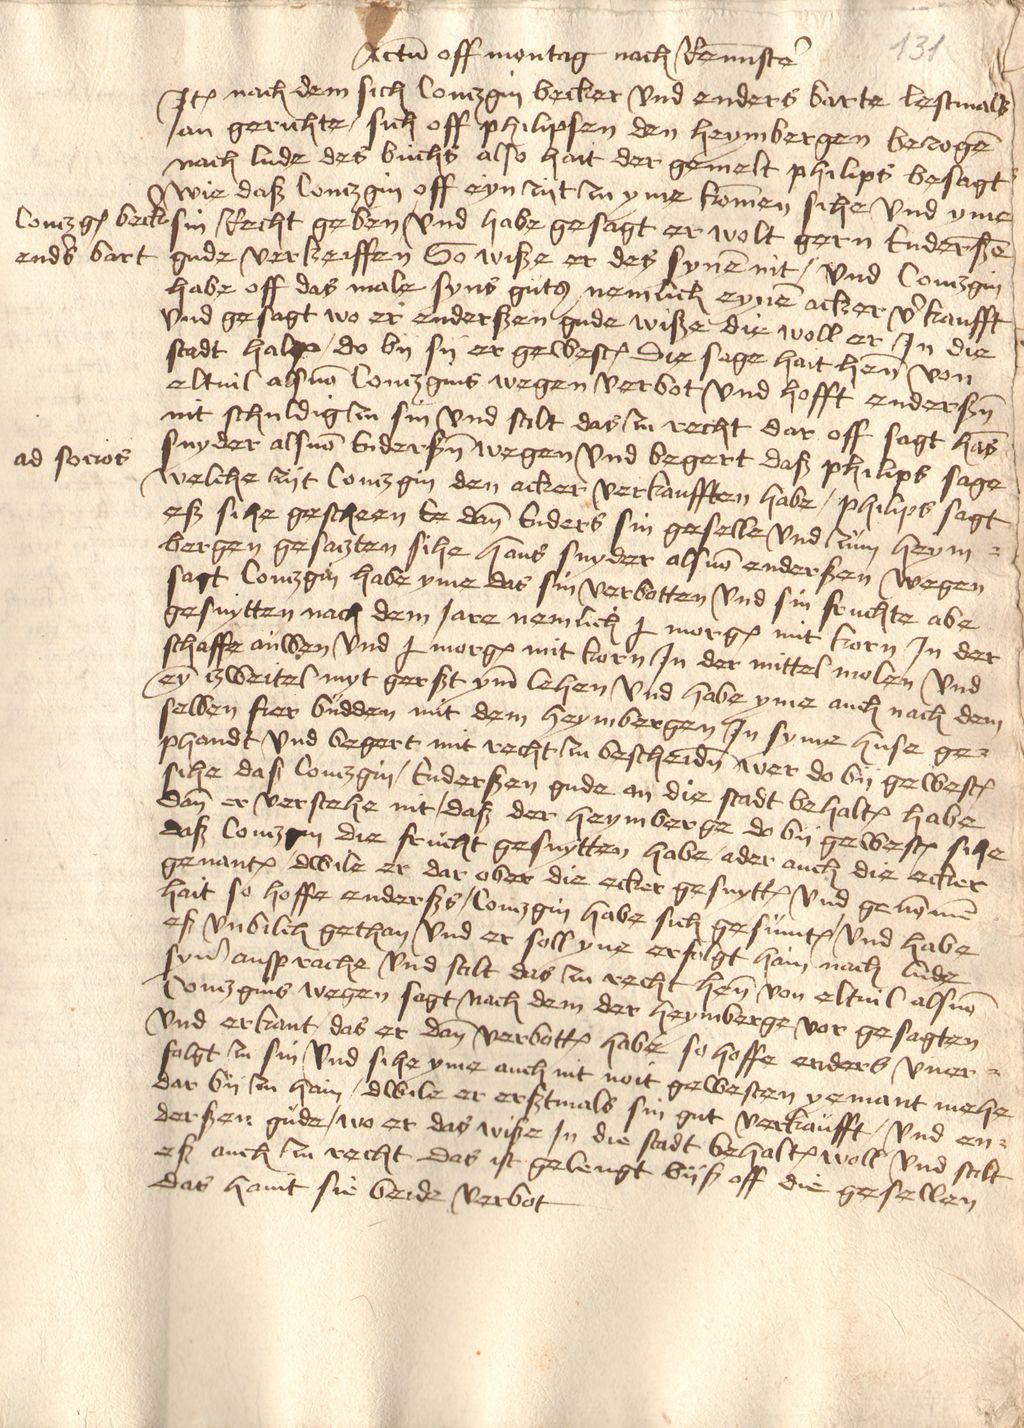 131
Actu off montag nach Reminiscere
Jt nach dem sich Contzgin becker und enders barte lestmals
an gerichte sich off philipsen den heymbergen bezogen
nach lude des buchs also hait der gemelt philips besagt
wie daß Contzgin off eyn zijt zu yme komen sihe und yme
Contzgin becker
sin Recht geben und habe gesagt er wolt gern Enderßen
enders bart
gude verkeiffen So wiße er des synen nit / und Contzgin
habe off das male syns guts nemlich eynen acker verkaufft
und gesagt wo er enderßen gude wiße die woll er In die
stadt halten / do bij sij er gewest Die sage hait hen von
eltuil als von Contzgins wegen verbot und hofft enderßen
nit schuldig zu sin und stilt das zu recht dar off sagt hans
snyder als von Enderßen wegen und begert daß philips sage
ad socios
welche zijt Contzgin den acker verkaufften habe / philips sagt
eß sihe gescheen Ee dan Enders sin geselle und zum heym-
bergen gesatzten sihe hans snyder als von enderßen wegen
sagt Contzgin habe yme das sin verbotten und sin fruchte abe
gesnytten nach dem Jare nemlich morg mit korn In der
schaffe auwen und morg mit korn In der mittel molen und
ey zweitel myt gerßt ym lehen und habe yme auch nach dem
selben fier budden mit dem heymbergen In syme huse ge-
phandt und begert mit recht zu bescheiden wer do bij gewest
sihe das Contzgin / Enderßen gude an die stadt behalt habe
dan er verstehe nit / daß der heymberge do bij gewest sihe
daß Contzgin die frucht gesnytten habe ader auch die ecker
genant / dwile er dar ober die ecker gesnytt und genomen
hait so hoffe enderßs / Contzgin habe sich gesumt / und habe
eß unbilch gethan und er soll yne erfolgt hain nach lude
syner ansprache und stilt das zu recht hen von eltuil als von
Contzgins wegen sagt nach dem der heymberge vor gesagten
und erkant das er dan verbott habe so hoffe enders uner-
folgt zu sin und sihe yme auch nit noit gewesten yemant mehe
dar bij zu hain / dwile er erßtmals sin gut verkaufft / und en-
derßen gude / wo er das wiße In die stadt behalt woll und stilt
eß auch zu recht das ist gelengt biß off die gesellen
das haint sie beide verbot